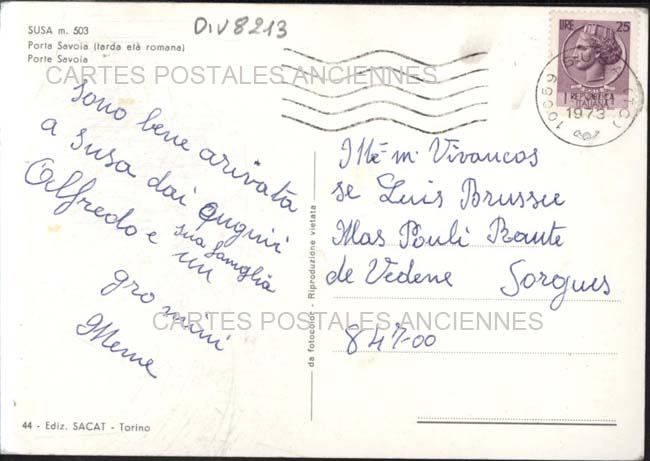 DIV8213
SUSA m. 503
Porta Savoia (tarda età romana)
Porte Savoia
CARTES POSTALES ANCIENNES
LIRE 25
REPUBBLICA
ITALIANA
10059
1973
sono bene arivata
a Susa dai
Alfredo e
sua famglia
un
gro
Meme
M
Vivancos
se Luis Brussee
Mas Pouli Raute
de Vedene Sorgues
84700
CARTES POSTALES ANCIENNES
da fotocolor - Riproduzione vietata
44 - Ediz. SACAT - Torino